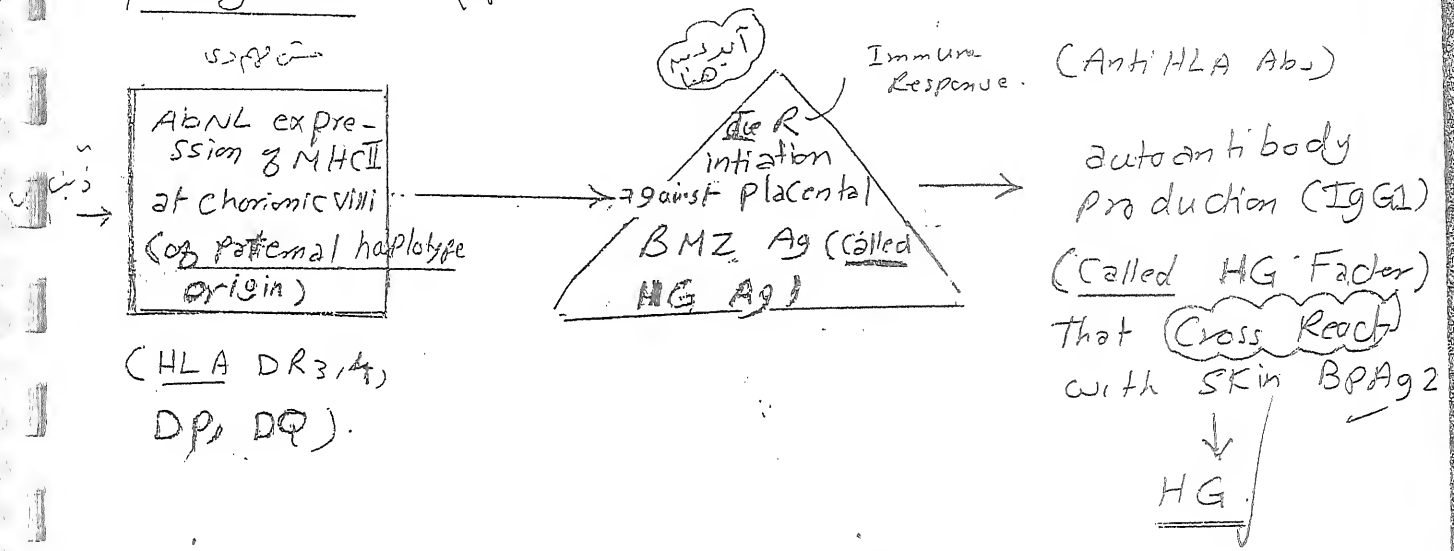 AbNL expre-
ssion of MHCII
at chorionic villi
(of paternal haplotype
origin)
(HLA DR3,4,
DP, DQ).
Immune
Response.
R
intiation
against placental
BMZ Ag (called
HG Ag)
(Anti HLA Abs)
autoantibody
production (IgG1)
(Called HG Factor)
That Cross React
with skin BPAg2
↓
HG